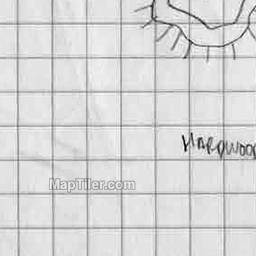 HARDWOOD
MapTiler.com